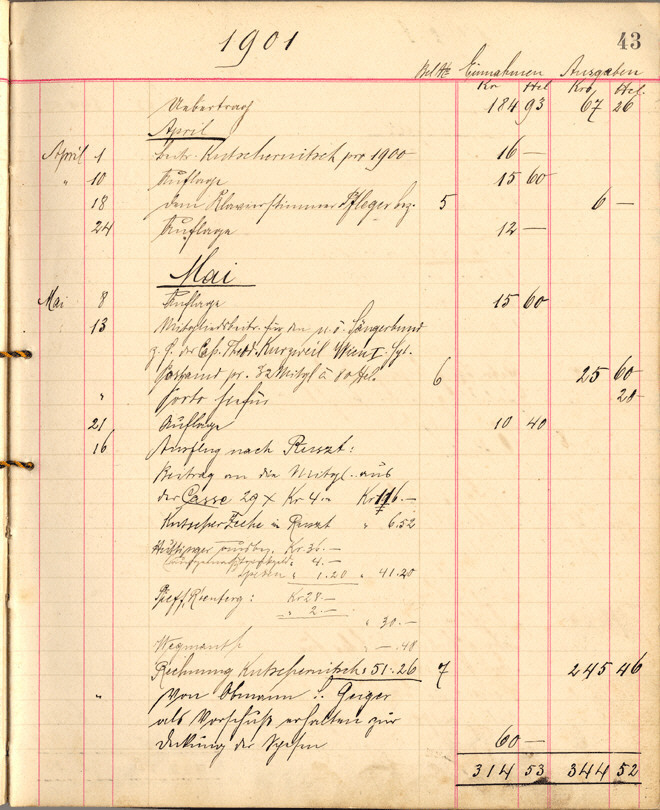 1901
43
Bel. No Einnahmen Ausgaben
Kr Hel Kro Hel.
Uebertrag 184 93 67 26
April
April 1 Beitr. Kutschernitsch pro 1900 16 —
" 10 Auflage 15 60
18 dem Klavierstimmer Pfleger bez. 5 6 —
24 Auflage 12 —
Mai
Mai 8 Auflage 15 60
13 Mitgliedsbeitr. für den n. ö. Sängerbund
z. H. des Theod. Kurzweil Wien I.
pr. 32 Mitgl. à 80 Hel. 6 25 60
" Porto hiefür 20
21 Auflage 10 40
16 Ausflug nach Reuszt:
Beitrag an die Mitgl. aus
der Casse 29 x Kr 4.– Kr 116.—
Kutscher Zeche in Reuszt " 6.52
Kr. 36.—
" 4.—
Spesen " 1.20 " 41.20
Schiff, : Kr 28.—
" 2.—
" 30.—
" —.48
Rechnung Kutschernitsch: 51.26 7 245 46
" Von Obmann L. Geiger
als Vorschuß erhalten zur
Deckung der Spesen 60 —
314 53 344 52